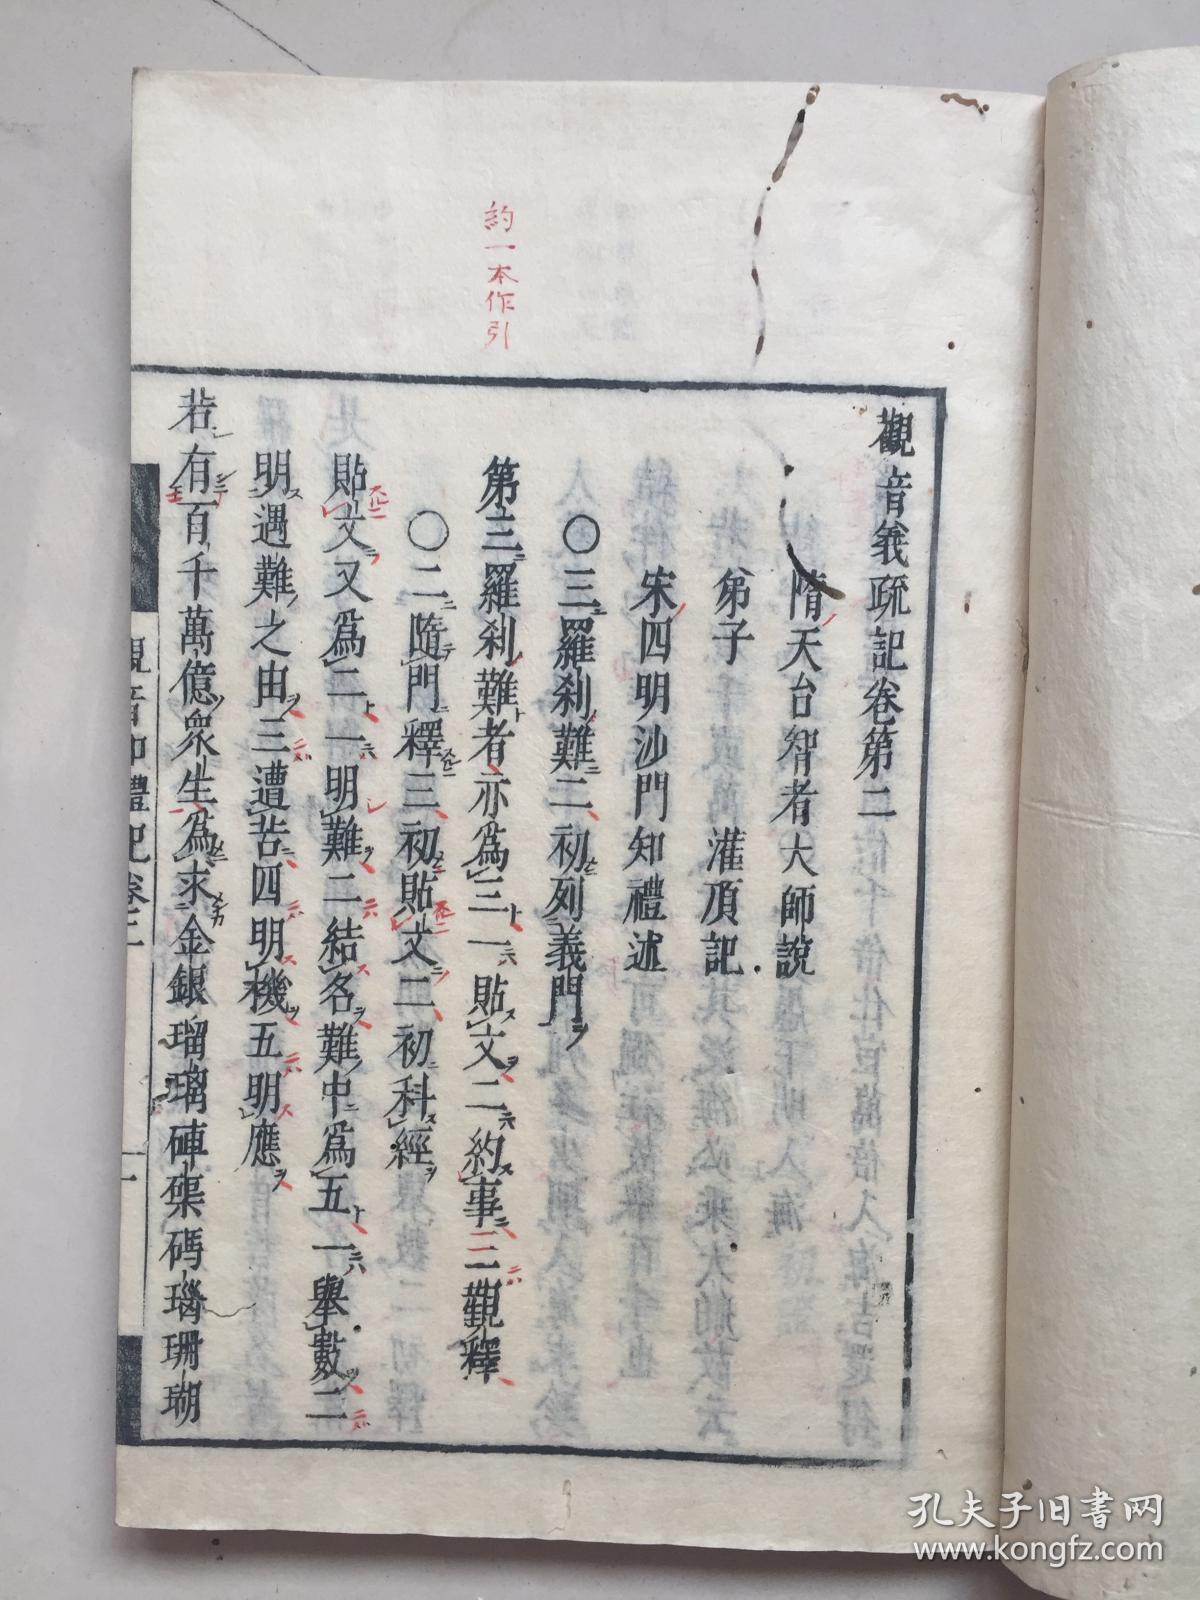 約一本作引
觀音義疏記卷第二
隋天台智者大師說
弟子　灌頂記
宋四明沙門知禮述
〇三羅剎難二初列義門
第三羅剎難者亦為三一貼文二約事三觀釋
〇二隨門釋三初貼文二初科經
貼文又為二一明難二結名難中為五一舉數二
明遇難之由三遭苦四明機五明應
若有百千萬億眾生為求金銀瑠璃硨磲碼瑙珊瑚
孔夫子旧书网
www.kongfz.com